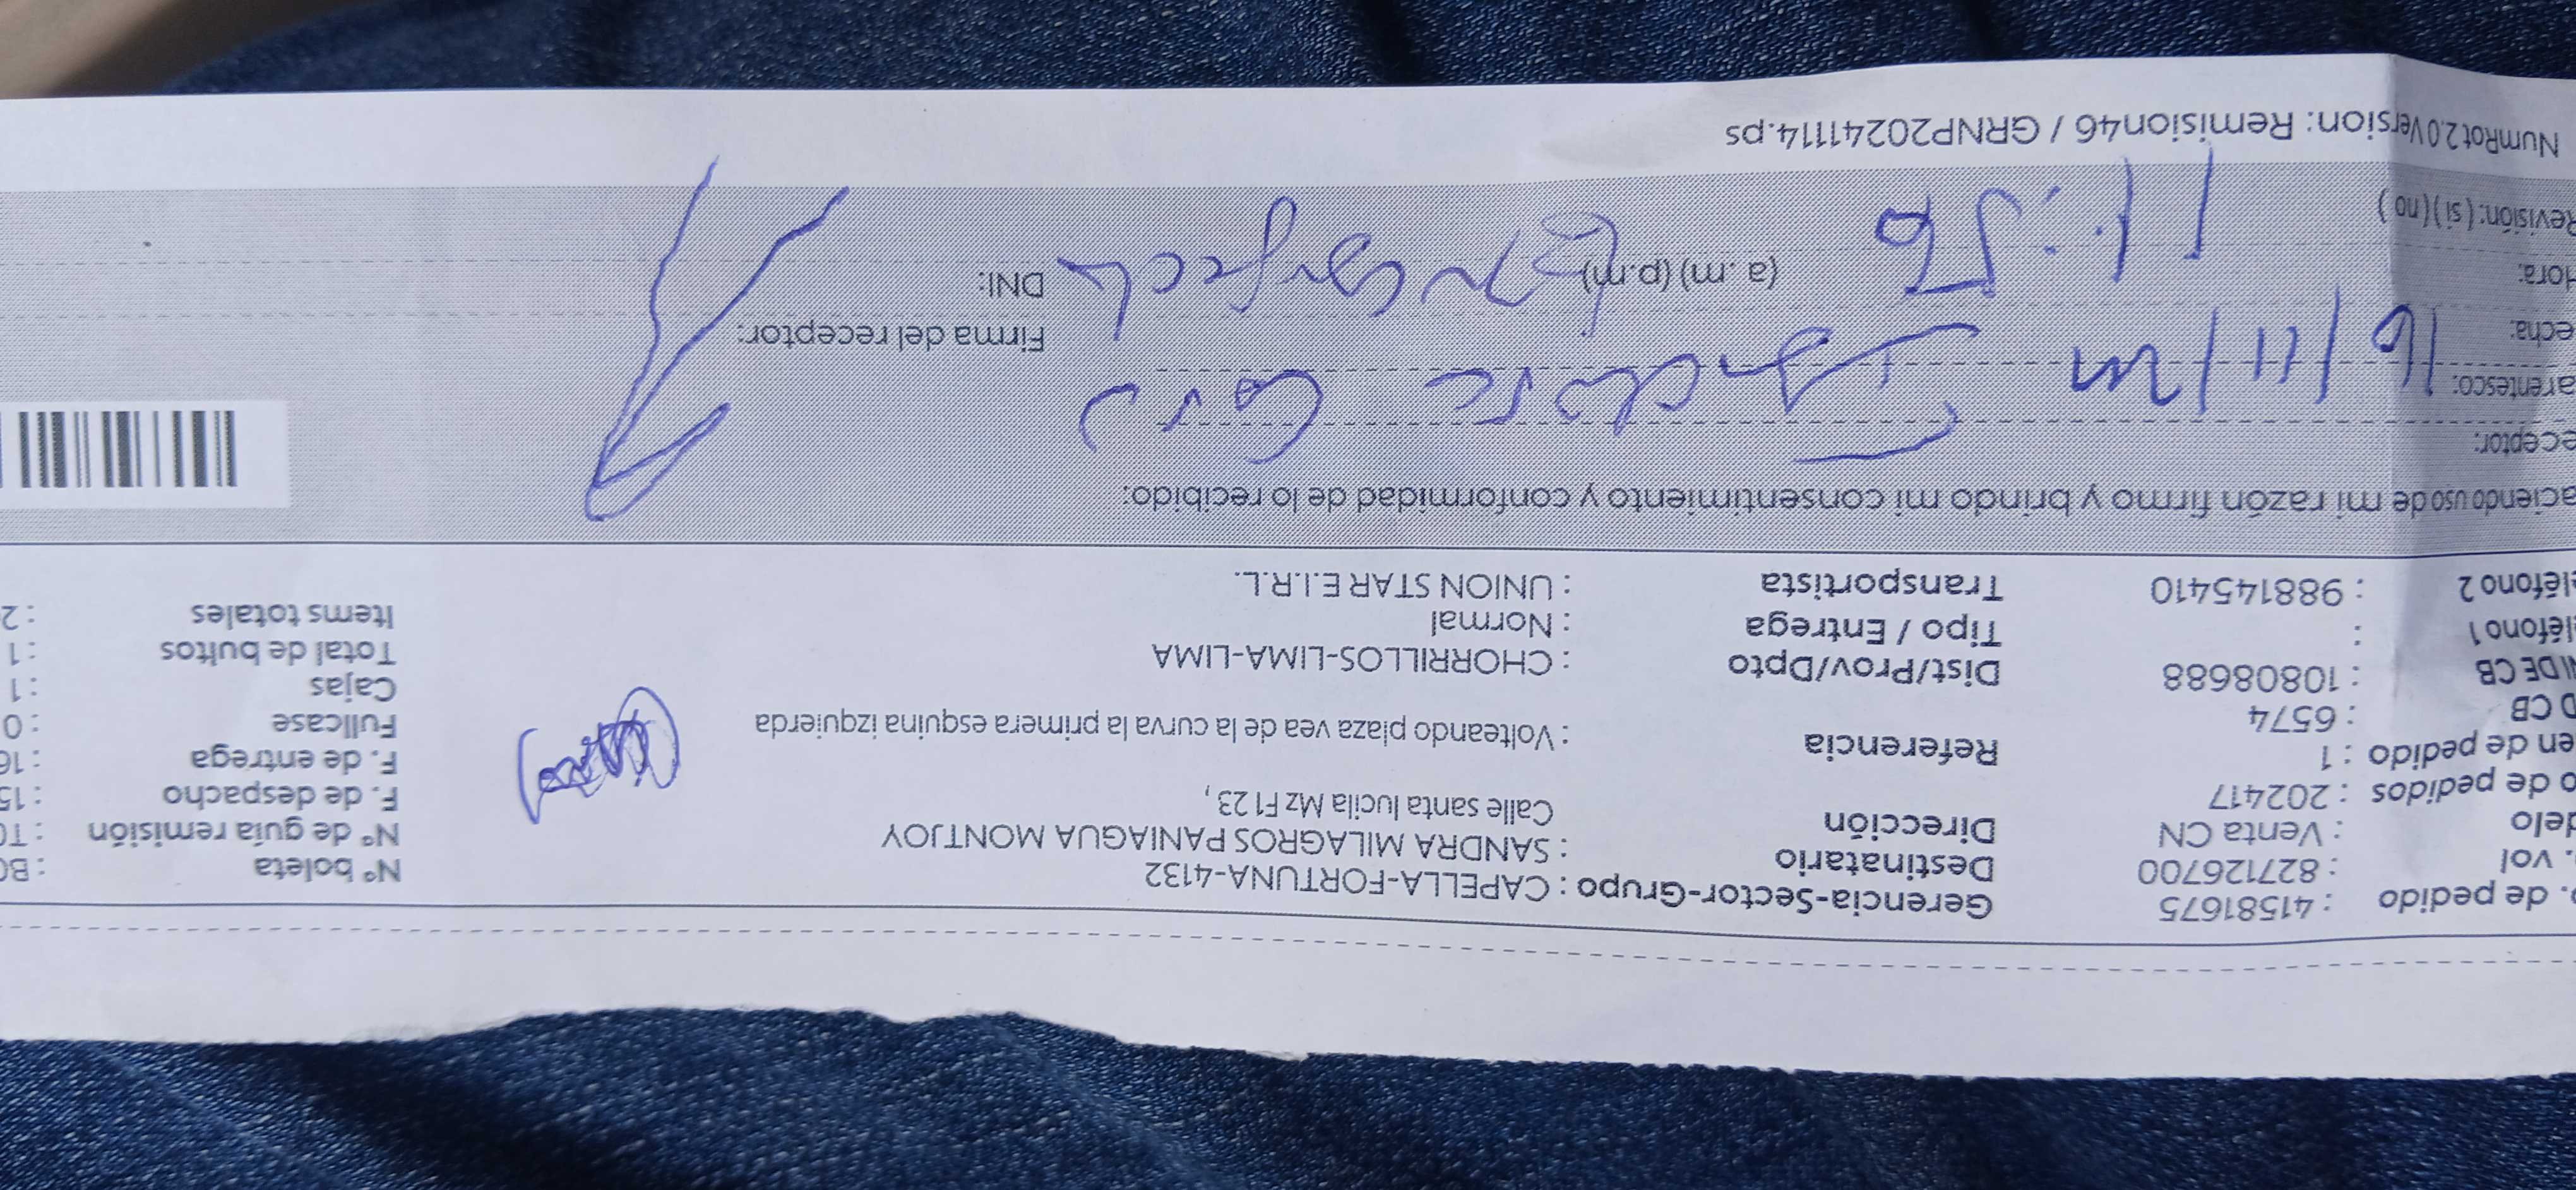 . de pedido : 41581675 Gerencia-Sector-Grupo : CAPELLA-FORTUNA-4132 N° boleta : B0
. vol : 827126700 Destinatario : SANDRA MILAGROS PANIAGUA MONTJOY N° de guía remisión : T0
delo : Venta CN Dirección Calle santa lucila Mz F1 23 , F. de despacho : 15
o de pedidos : 202417 F. de entrega : 16
en de pedido : 1 Referencia : Volteando plaza vea de la curva la primera esquina izquierda Fullcase : 0
D CB : 6574 Cajas : 1
NI DE CB : 10808688 Dist/Prov/Dpto : CHORRILLOS-LIMA-LIMA Total de bultos : 1
eléfono 1 : Tipo / Entrega : Normal Items totales : 2
eléfono 2 : 988145410 Transportista : UNION STAR E.I.R.L.
aciendo uso de mi razón firmo y brindo mi consentimiento y conformidad de lo recibido:
eceptor:
arentesco:
echa: 16/11/ Firma del receptor:
Hora: 11:56 (a.m) (p.m) DNI:
Revisión: ( si ) ( no )
NumRot 2.0 Version: Remision46 / GRNP20241114.ps